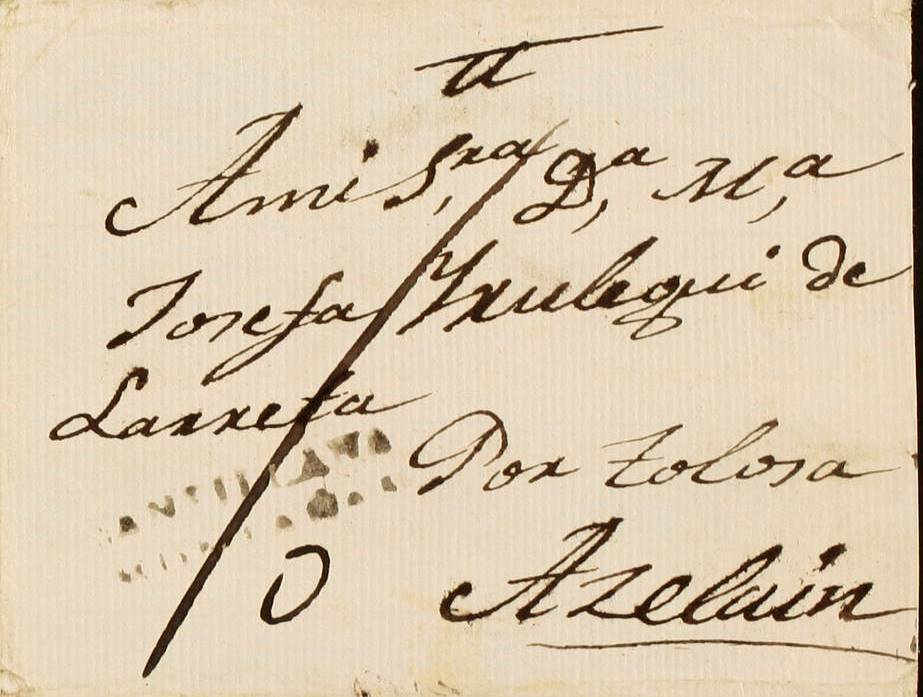 A mi S,ra D,a M,a
Josefa Yrulegui de
Larreta
Por Tolosa
Azelain